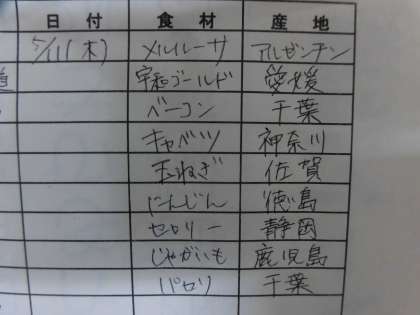 日付 食材 産地
5/11(木) メルルーサ アルゼンチン
宇和ゴールド 愛媛
ベーコン 千葉
キャベツ 神奈川
玉ねぎ 佐賀
にんじん 徳島
セロリー 静岡
じゃがいも 鹿児島
パセリ 千葉